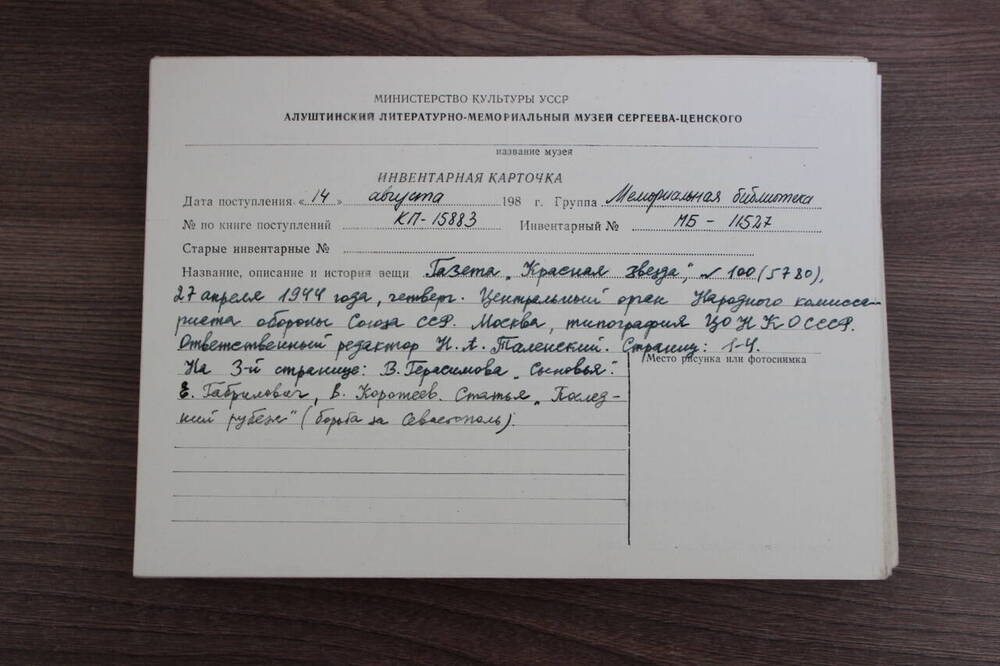 МИНИСТЕРСТВО КУЛЬТУРЫ УССР
АЛУШТИНСКИЙ ЛИТЕРАТУРНО-МЕМОРИАЛЬНЫЙ МУЗЕЙ СЕРГЕЕВА-ЦЕНСКОГО
название музея
ИНВЕНТАРНАЯ КАРТОЧКА
Дата поступления «14» августа 198 г. Группа Мемориальная библиотека
№ по книге поступлений КП-15883 Инвентарный № МБ-11527
Старые инвентарные №
Название, описание и история вещи Газета „Красная звезда", № 100 (5780),
27 апреля 1944 года, четверг. Центральный орган Народного комисса-
риата обороны Союза ССР. Москва, типография ЦО НКО СССР.
Ответственный редактор Н.А. Таленский. Страниц: 1-4.
Место рисунка или фотоснимка
На 3-й странице: В. Герасимова „Сыновья".
Е. Габрилович, В. Коротеев. Статья „Послед-
ний рубеж" (борьба за Севастополь).